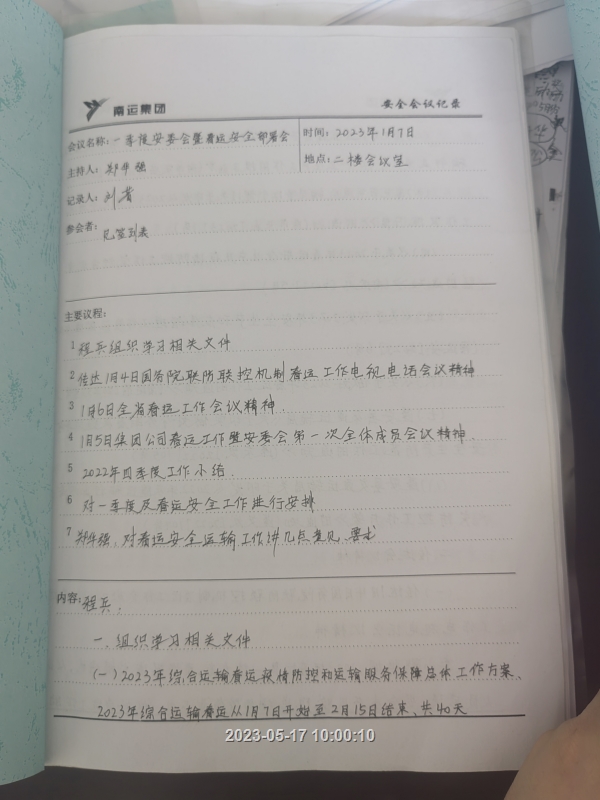 南运集团
安全会议记录
会议名称:一季度安委会暨春运安全部署会
时间:2023年1月7日
主持人:郑华强
地点:二楼会议室
记录人:刘
参会者:见签到表
主要议程:
1 程兵组织学习相关文件
2 传达1月4日国务院联防联控机制春运工作电视电话会议精神
3 1月6日全省春运工作会议精神.
4 1月5日集团公司春运工作暨安委会第一次全体成员会议精神.
5 2022年四季度工作小结.
6 对一季度及春运安全工作进行安排
7 郑华强,对春运安全运输工作讲几点意见、要求
内容:程兵:
一.组织学习相关文件
(一)2023年综合运输春运疫情防控和运输服务保障总体工作方案、
2023年综合运输春运从1月7日开始至2月15日结束、共40天
2023-05-17 10:00:10